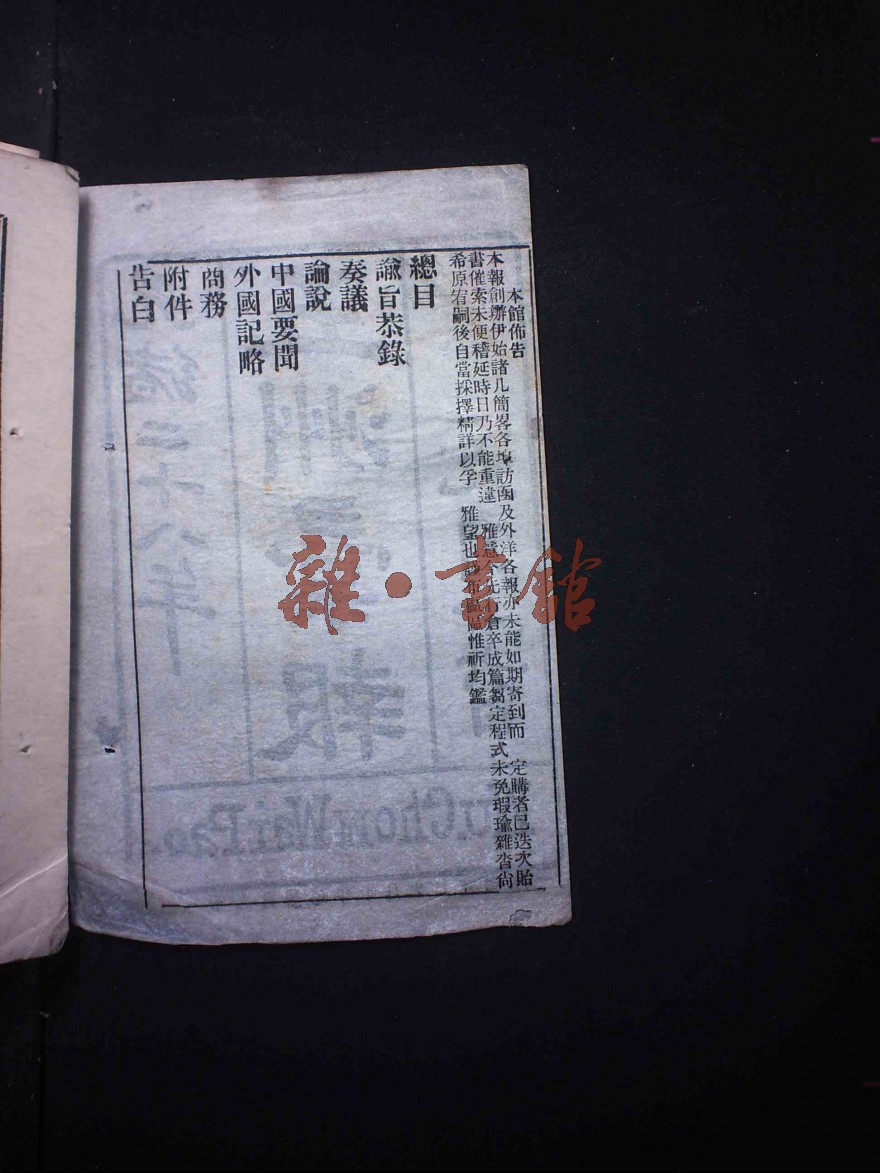 本館佈告
本報創辦伊始諸凡簡畧各埠訪函及外洋各報亦未能如期寄到而 定購者已迭次貽
書催索未便稽延時日乃不能重違 雅意今先行倉卒成篇製定程式未免瑕瑜雜沓尚
希原宥嗣後自當採擇精詳以孚 雅望也 惟祈均鑑
總目
諭旨恭錄
奏議
論說
中國要聞
外國記略
商務
附件
告白
雜·書館